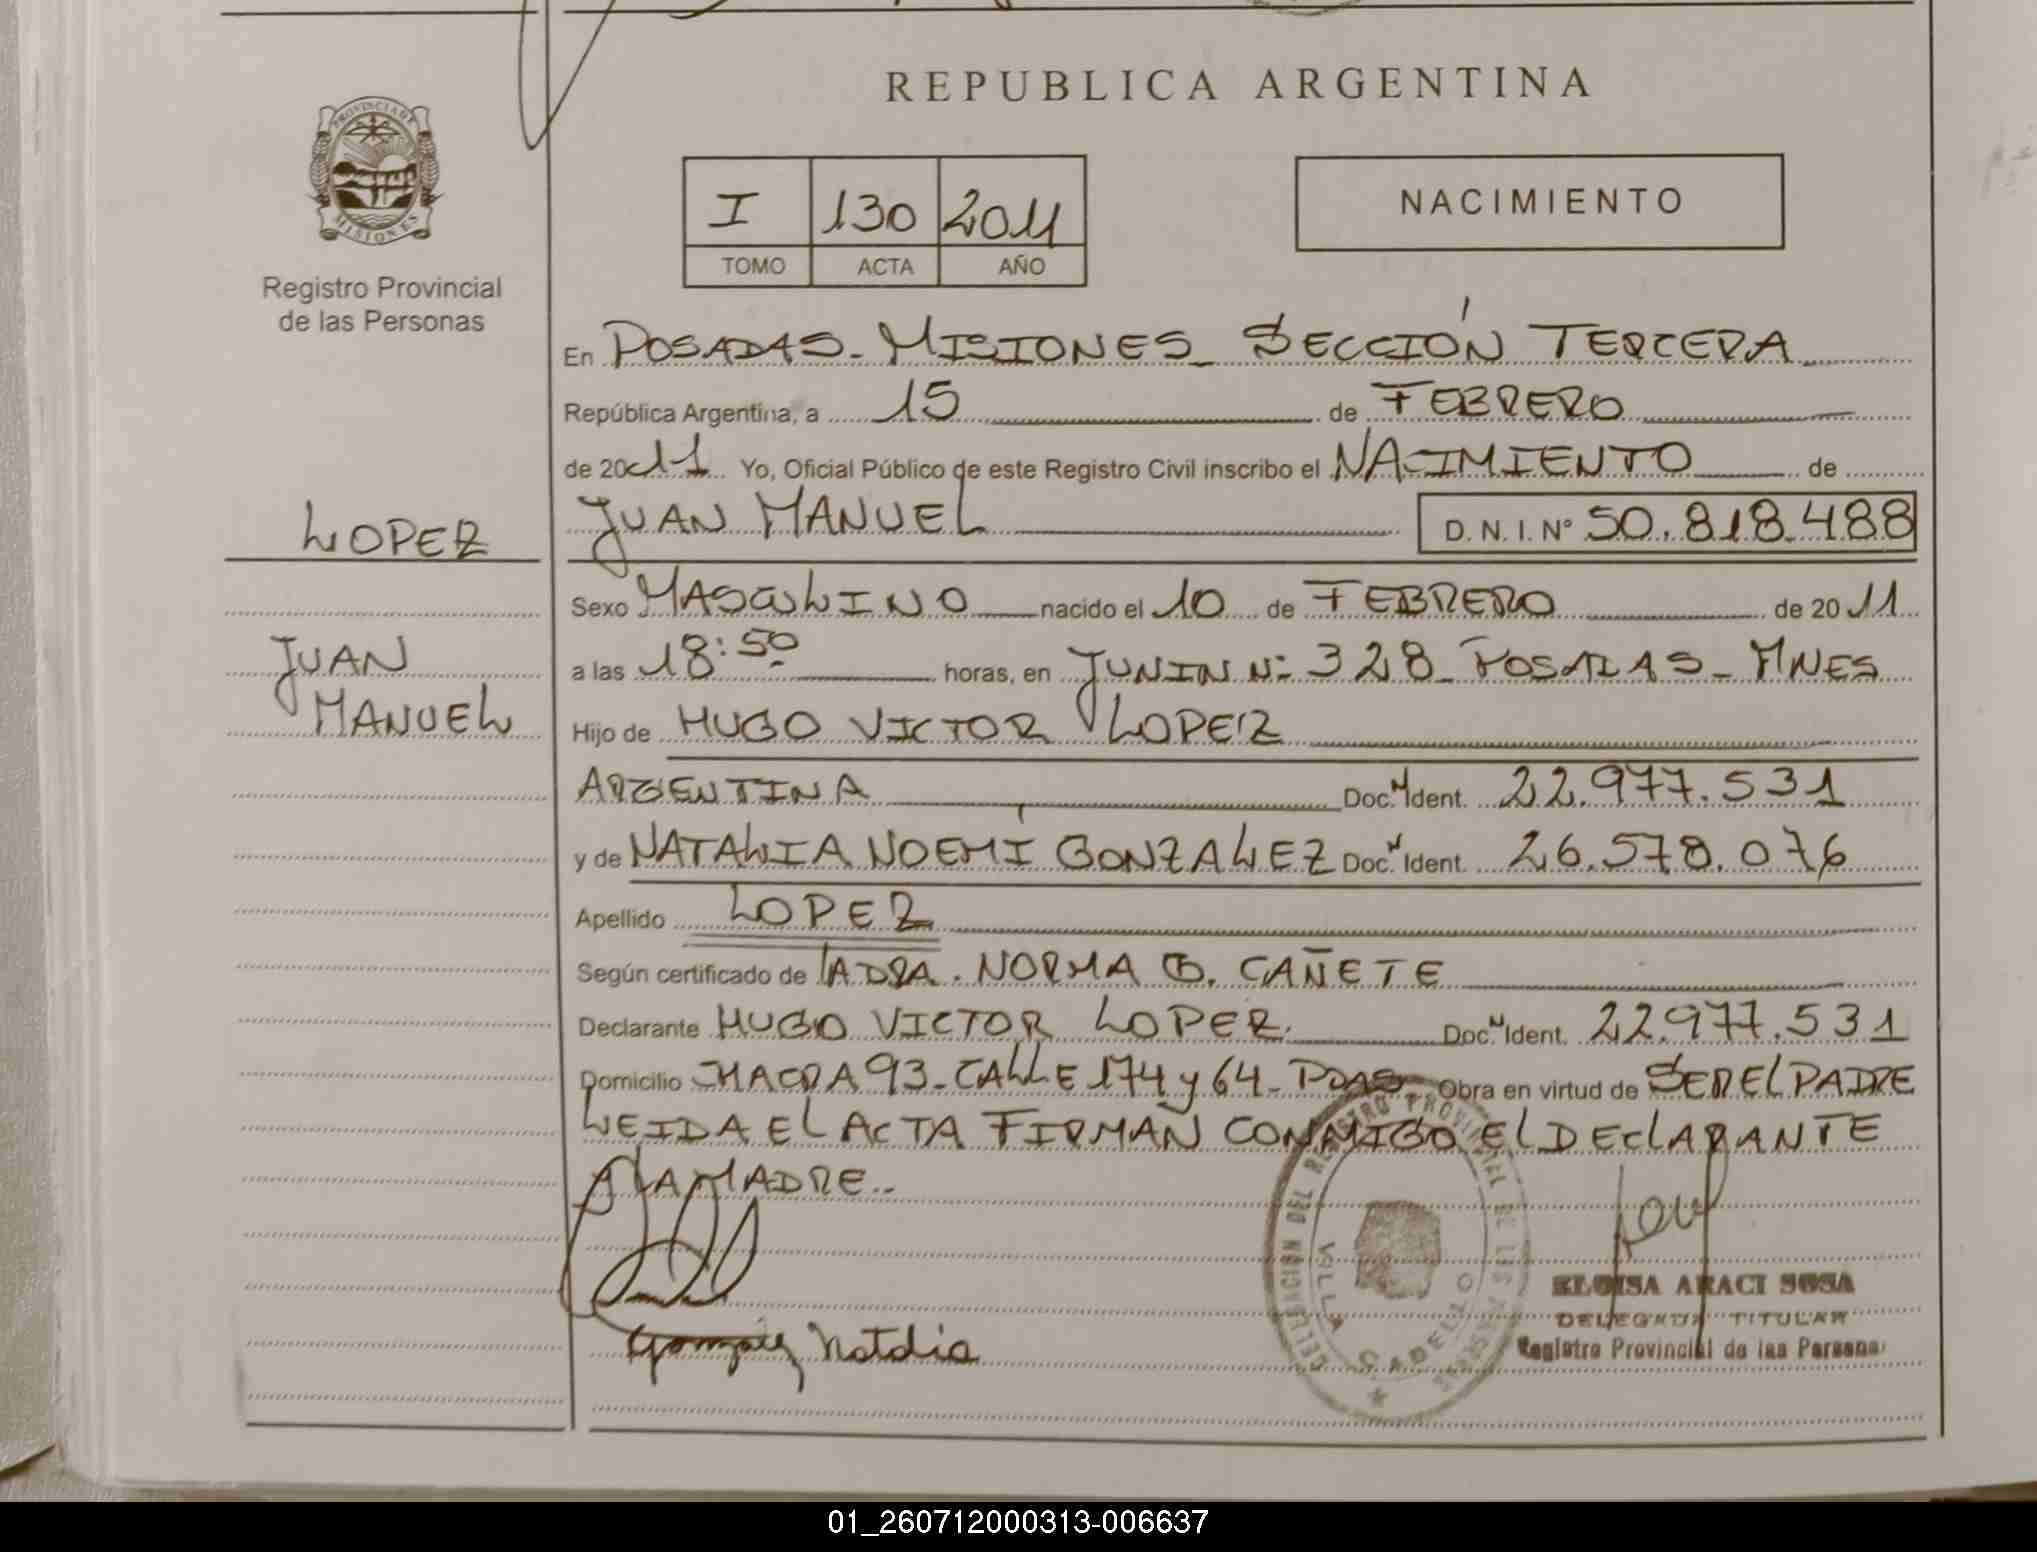 REPUBLICA ARGENTINA
PROVINCIA DE MISIONES
Registro Provincial
de las Personas
I 130 2011
TOMO ACTA AÑO
NACIMIENTO
En POSADAS - MISIONES - SECCIÓN TERCERA
República Argentina, a 15 de FEBRERO
de 2011 Yo, Oficial Público de este Registro Civil inscribo el NACIMIENTO de
JUAN MANUEL D. N. I. Nº 50.818.488
LOPEZ
JUAN
MANUEL
Sexo MASCULINO nacido el 10 de FEBRERO de 2011
a las 18:50 horas, en JUNIN Nº 328 - POSADAS - MNES
Hijo de HUGO VICTOR LOPEZ
ARGENTINA Doc. N Ident. 22.977.531
y de NATALIA NOEMÍ GONZALEZ Doc. N Ident. 26.578.076
Apellido LOPEZ
Según certificado de NORMA B. CAÑETE
Declarante HUGO VICTOR LOPEZ. Doc. N Ident. 22.977.531
Domicilio CHACRA 93 - CALLE 174 y 64 - PDAS Obra en virtud de SER EL PADRE
LEIDA EL ACTA FIRMAN CONMIGO EL DECLARANTE
Y LA MADRE..
Gonzalez Natalia
DELEGACION DEL REGISTRO PROVINCIAL DE LAS PERSONAS
VILLA CABELLO
ELOISA ARACI SOSA
DELEGADA TITULAR
Registro Provincial de las Personas
01_260712000313-006637